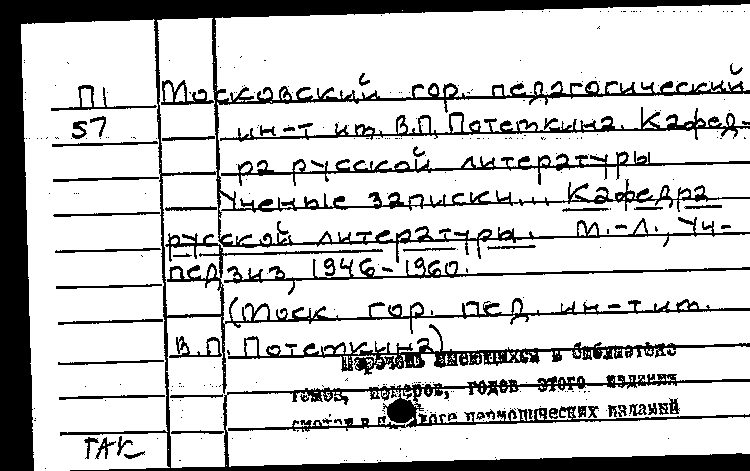 П1 Московский гор. педагогический
57 ин-т им. В.П. Потемкина. Кафед-
ра русской литературы
Ученые записки... Кафедра
русской литературы. М.-Л., Уч-
педгиз, 1946-1960.
(Моск. гор. пед. ин-т им.
В.П. Потемкина).
Перечень имеющихся в библиотеке
томов, номеров, годов этого издания
смотри в каталоге периодических изданий
ГАК